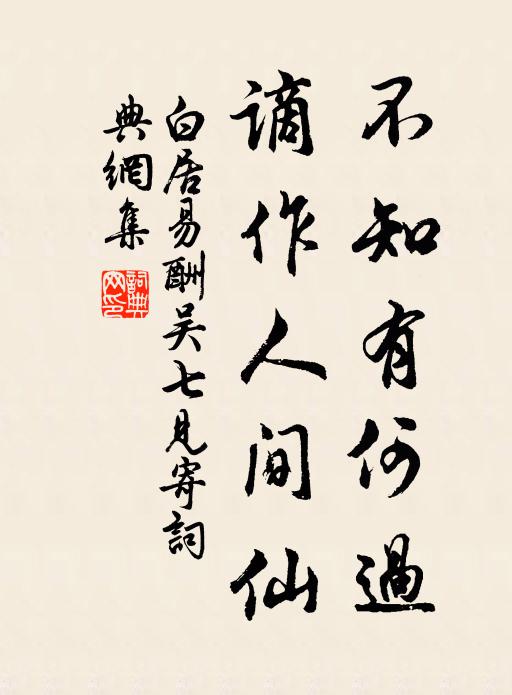 不知有何過
謫作人間仙
白居易酬吴七見寄詞
典網集
詞典
网印